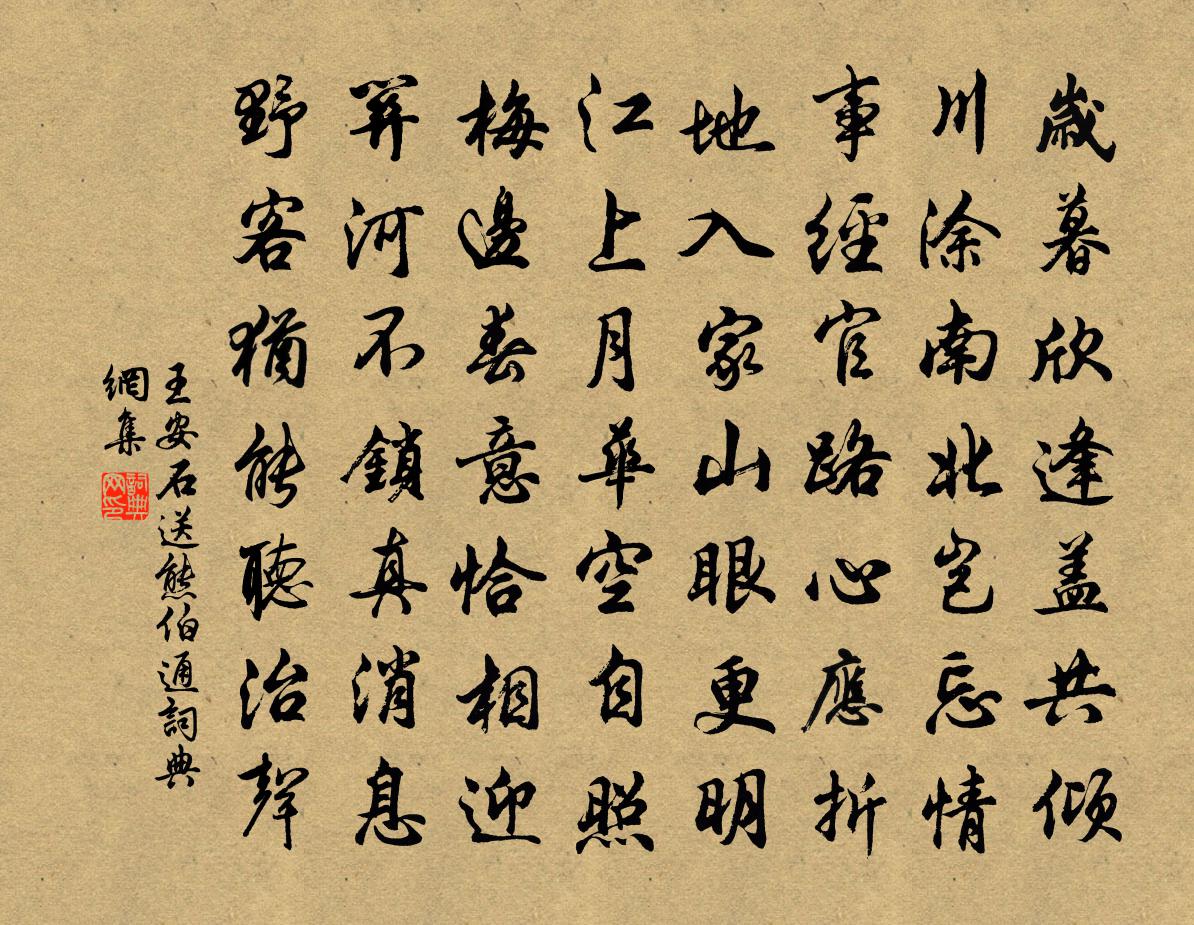 歲暮欣逢蓋共傾
川涂南北豈忘情
事經官路心應折
地入家山眼更明
江上月華空自照
梅邊春意恰相迎
笄河不鎖真消息
野客猶能聽治聲
王安石送熊伯通詞典
網集
詞典網印